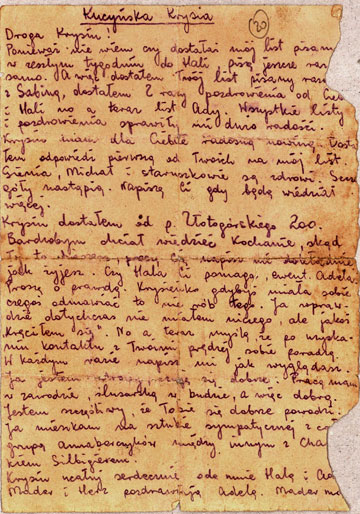 Kucyńska Krysia
20
Droga Krysiu!!
Ponieważ nie wiem czy dostałaś mój list pisany
w zeszłym tygodniu do Hali piszę jeszcze raz
samo. A więc dostałem Twój list pisany raz.
z Sabiną, dostałem 2 razy pozdrowienia od Cie
i Hali no a teraz list Ady. Wszystkie listy
i pozdrowienia sprawiły mi dużo radości.
Krysiu mam dla Ciebie radosną nowinę. Dost
łem odpowiedź pierwszą od Twoich na mój list.
Sienia, Michał i staruszkowie są zdrowi. Szcze
góły nastąpią. Napiszę Ci gdy będę wiedział
więcej.
Krysiu dostałem od p. Złotogórskiego 200.
Bardzobym chciał wiedzieć Kochanie, skąd
to pracy Ci napisz mi dokładnie
jak żyjesz. Czy Hala Ci pomaga, ewent. Adela
Proszę o prawdę. Krysieńko gdybyś miała sobie
czegoś odmawiać to nie rób tego. Ja wpraw
dzie dotychczas nie miałem niczego, ale jakoś
"kręciłem się". No a teraz myślę, że po uzyska
niu kontaktu z Twoimi prędzej sobie poradzę.
W każdym razie napisz mi jak wyglądasz.
Ja jestem zdrów, czuję się dobrze. Pracuję
w zawodzie, ślusarką w budzie, a więc dobrą.
Jestem szczęśliwy, że Tobie się dobrze powodzi.
Ja mieszkam na sztubie sympatycznej z c
grupą annaborczyków między innym z Cha
kiem Silbigierem.
Krysiu ucałuj serdecznie ode mnie Halę i Ad
Mader i Herz pozdrawiają Adelę. Mader mi